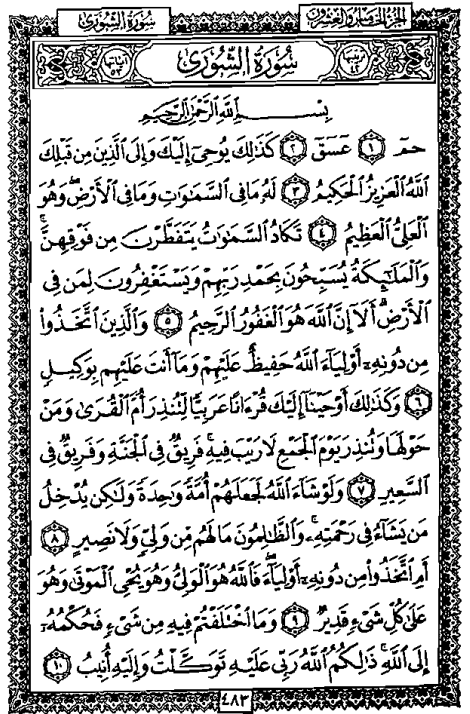 الجزء الخامس والعشرون
سورة الشورى
ترتيبها ٤٢
سورة الشورى
آياتها ٥٣
بسم الله الرحمن الرحيم
حمٓ ١ عٓسٓقٓ ٢ كَذَٰلِكَ يُوحِىٓ إِلَيْكَ وَإِلَى ٱلَّذِينَ مِن قَبْلِكَ
ٱللَّهُ ٱلْعَزِيزُ ٱلْحَكِيمُ ٣ لَهُۥ مَا فِى ٱلسَّمَٰوَٰتِ وَمَا فِى ٱلْأَرْضِ ۖ وَهُوَ
ٱلْعَلِىُّ ٱلْعَظِيمُ ٤ تَكَادُ ٱلسَّمَٰوَٰتُ يَتَفَطَّرْنَ مِن فَوْقِهِنَّ ۚ
وَٱلْمَلَٰٓئِكَةُ يُسَبِّحُونَ بِحَمْدِ رَبِّهِمْ وَيَسْتَغْفِرُونَ لِمَن فِى
ٱلْأَرْضِ ۗ أَلَآ إِنَّ ٱللَّهَ هُوَ ٱلْغَفُورُ ٱلرَّحِيمُ ٥ وَٱلَّذِينَ ٱتَّخَذُوا۟
مِن دُونِهِۦٓ أَوْلِيَآءَ ٱللَّهُ حَفِيظٌ عَلَيْهِمْ وَمَآ أَنتَ عَلَيْهِم بِوَكِيلٍ
٦ وَكَذَٰلِكَ أَوْحَيْنَآ إِلَيْكَ قُرْءَانًا عَرَبِيًّا لِّتُنذِرَ أُمَّ ٱلْقُرَىٰ وَمَنْ
حَوْلَهَا وَتُنذِرَ يَوْمَ ٱلْجَمْعِ لَا رَيْبَ فِيهِ ۚ فَرِيقٌ فِى ٱلْجَنَّةِ وَفَرِيقٌ فِى
ٱلسَّعِيرِ ٧ وَلَوْ شَآءَ ٱللَّهُ لَجَعَلَهُمْ أُمَّةً وَٰحِدَةً وَلَٰكِن يُدْخِلُ
مَن يَشَآءُ فِى رَحْمَتِهِۦ ۚ وَٱلظَّٰلِمُونَ مَا لَهُم مِّن وَلِىٍّ وَلَا نَصِيرٍ ٨
أَمِ ٱتَّخَذُوا۟ مِن دُونِهِۦٓ أَوْلِيَآءَ ۖ فَٱللَّهُ هُوَ ٱلْوَلِىُّ وَهُوَ يُحْىِ ٱلْمَوْتَىٰ وَهُوَ
عَلَىٰ كُلِّ شَىْءٍ قَدِيرٌ ٩ وَمَا ٱخْتَلَفْتُمْ فِيهِ مِن شَىْءٍ فَحُكْمُهُۥٓ
إِلَى ٱللَّهِ ۚ ذَٰلِكُمُ ٱللَّهُ رَبِّى عَلَيْهِ تَوَكَّلْتُ وَإِلَيْهِ أُنِيبُ ١٠
٤٨٣